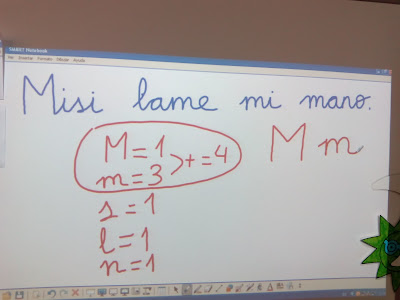 SMART Notebook
Misi lame mi mano.
M = 1 >+ = 4 M m
m = 3
s = 1
l = 1
n = 1